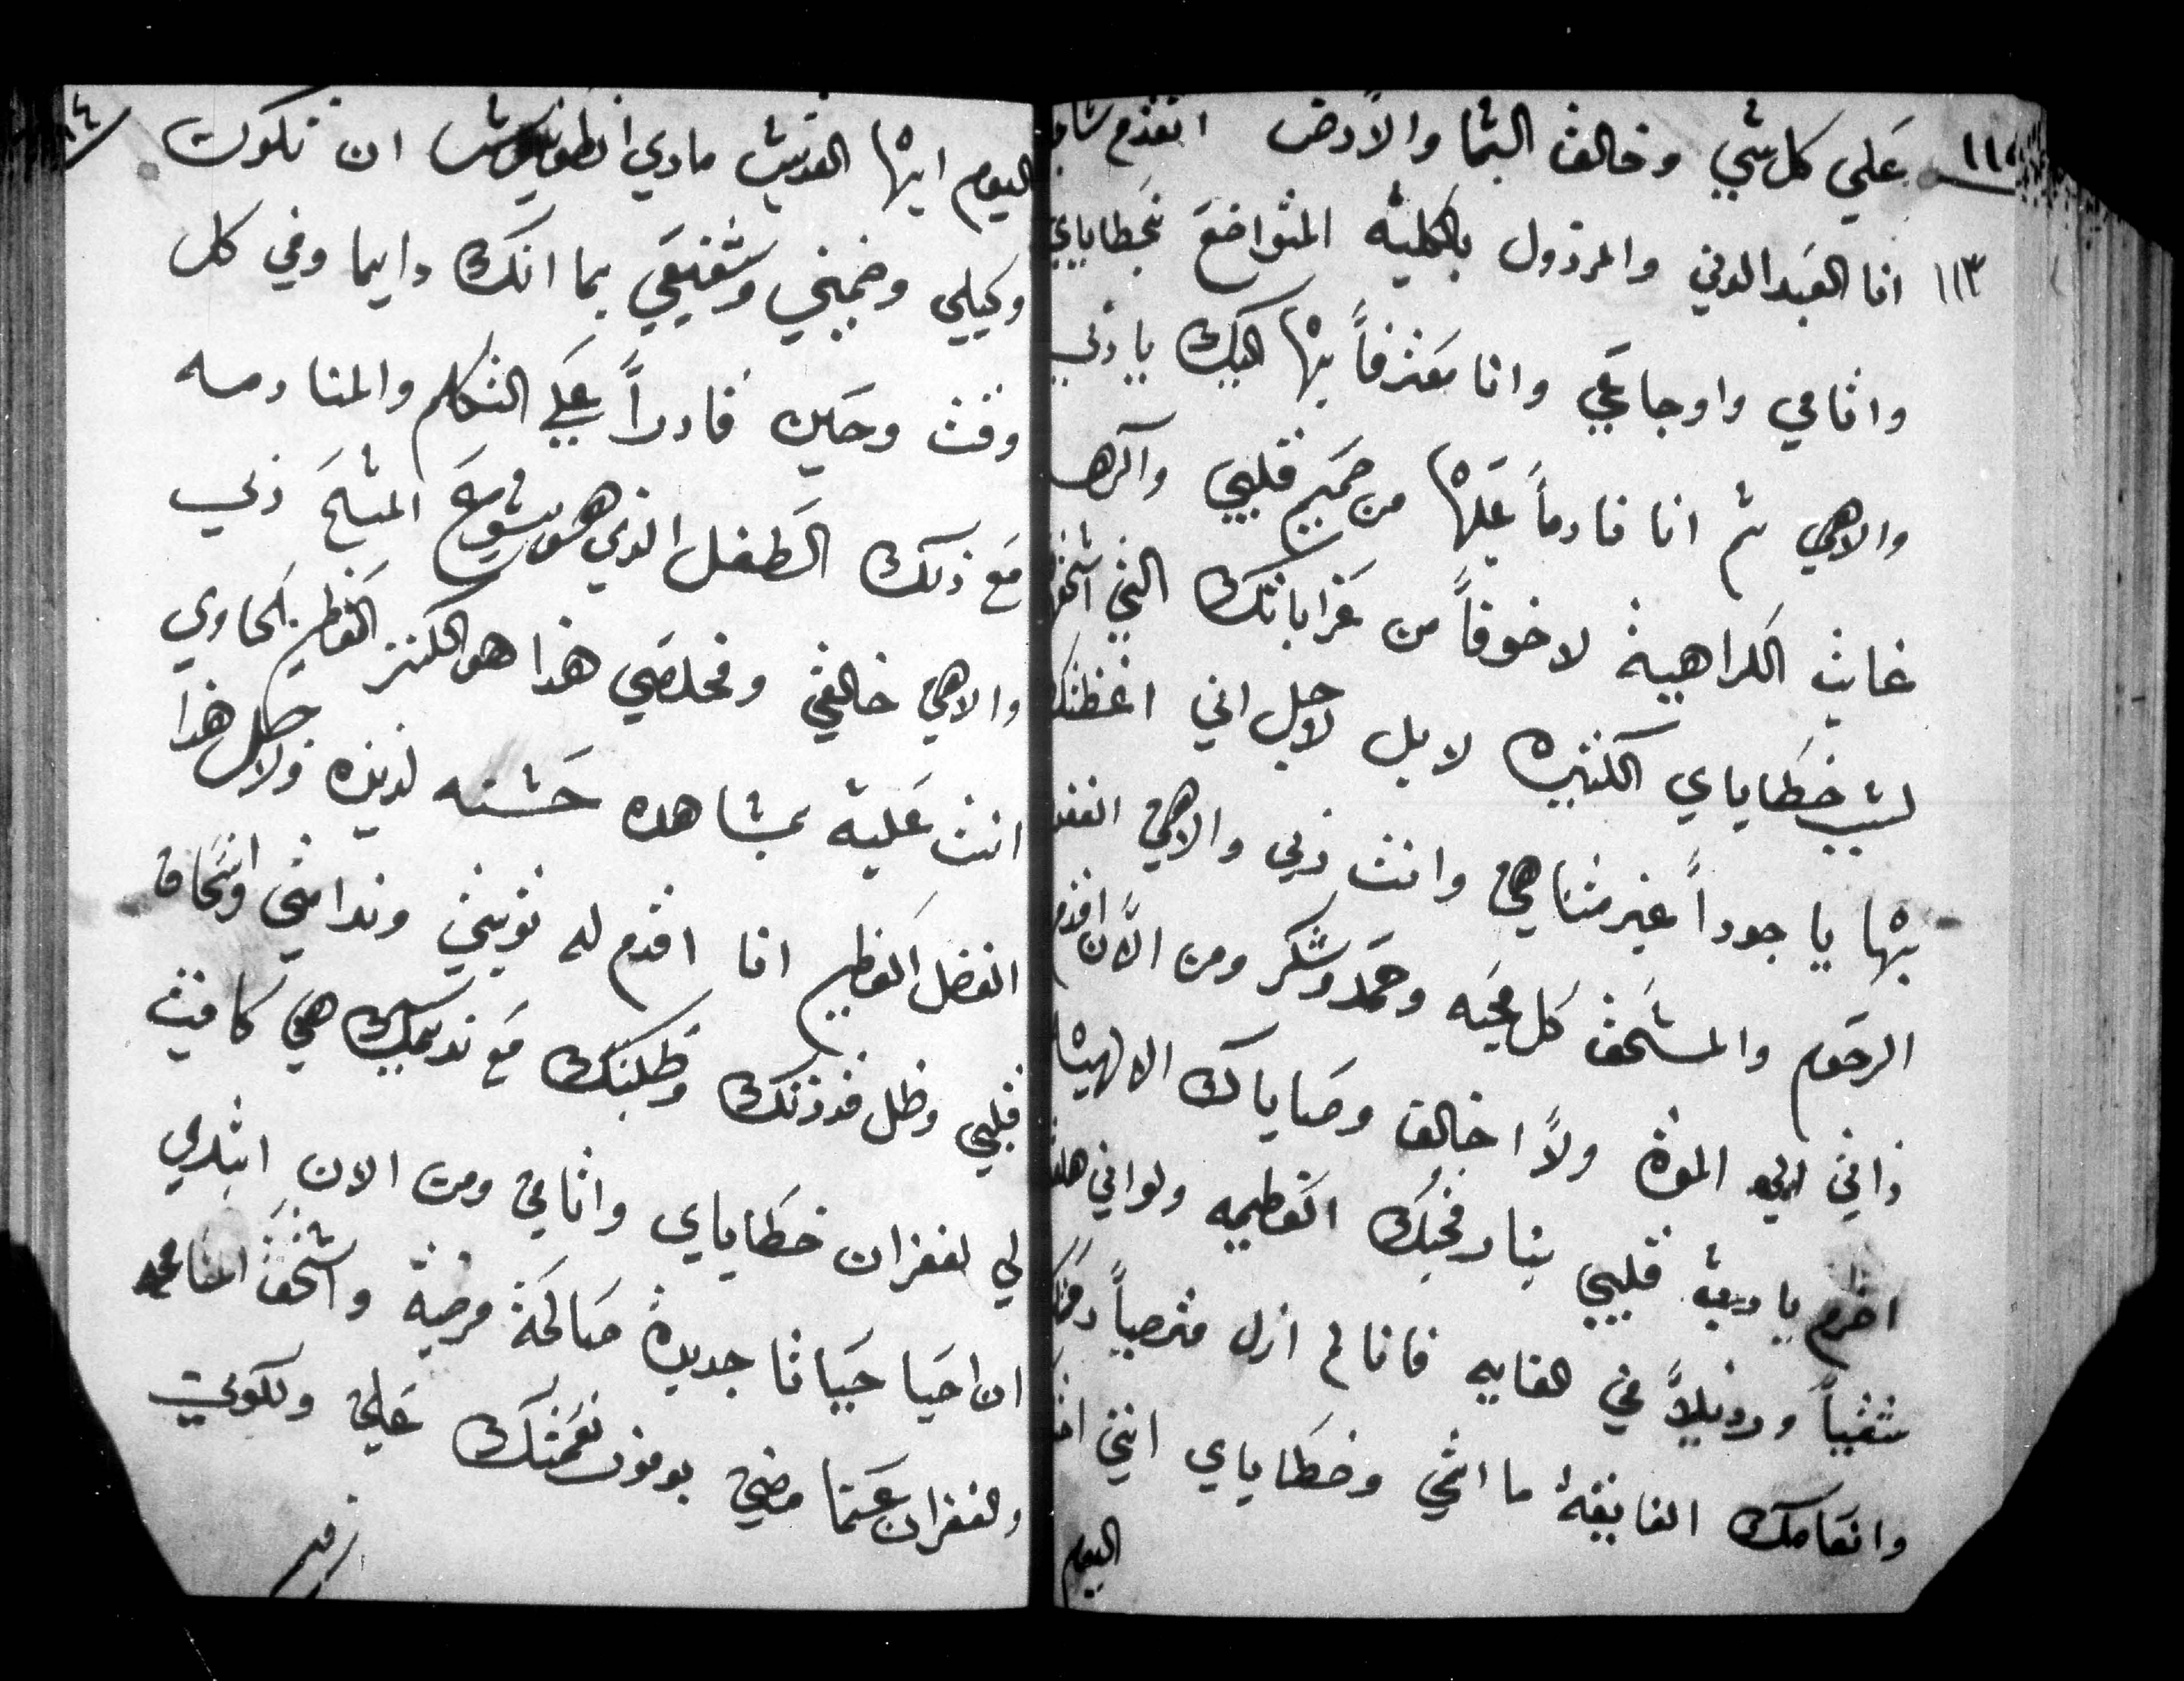 ١١٤ علي كل شي وخالق السما والارض اتقدم
١١٣ انا العبد الدني والمرذول بالكليه المتواضع بخطاياي
واثامي واوجاعي وانا معترفاً بها اليك يا ربي
والاهي ثم انا نادماً عليها من صميم قلبي واكرها
غايت الكراهية لا خوفاً من عذاباتك التي
لسبب خطاياي الكثيره لا بل لاجل اني اغظتك
بها يا جوداً غير متناهي وانت ربي والاهي
الرحوم والمستحق كل محبه وحمد وشكر ومن الآن اقدم
ذاتي الي الموة ولا اخالف وصاياك الالهيه
اضرم يا رب قلبي بنار محبتك العظيمه ولو اني
شقياً ورذيلاً في الغايه فانا لم ازل مترجياً
وانعامك الفايقة ما اثمي وخطاياي انني
اليوم
اليوم ايها القديس ماري انطونيوس ان تكون
وكيلي وضميني وشفيعي بما انك دايما وفي كل
وقت وحين قادراً علي التكلم والمنادمه
مع ذلك الطفل الذي هو يسوع المسيح ربي
والاهي خالقي ومخلصي هذا هو الكنز العظيم الحاوي
انت عليه بمشاهده حسنه لذيذه ولاجل هذا
الفضل العظيم انا اقدم له توبتي وندامتي وانسحاق
قلبي وظل قدرتك وطلبتك مع نديمك هي كافيت
لي لغفران خطاياي واثامي ومن الان ابتدي
ان احيا حياتا جديدة صالحة مرضية واستحق المسامحه
والغفران عما مضي بوفور نعمتك علي ولكوني